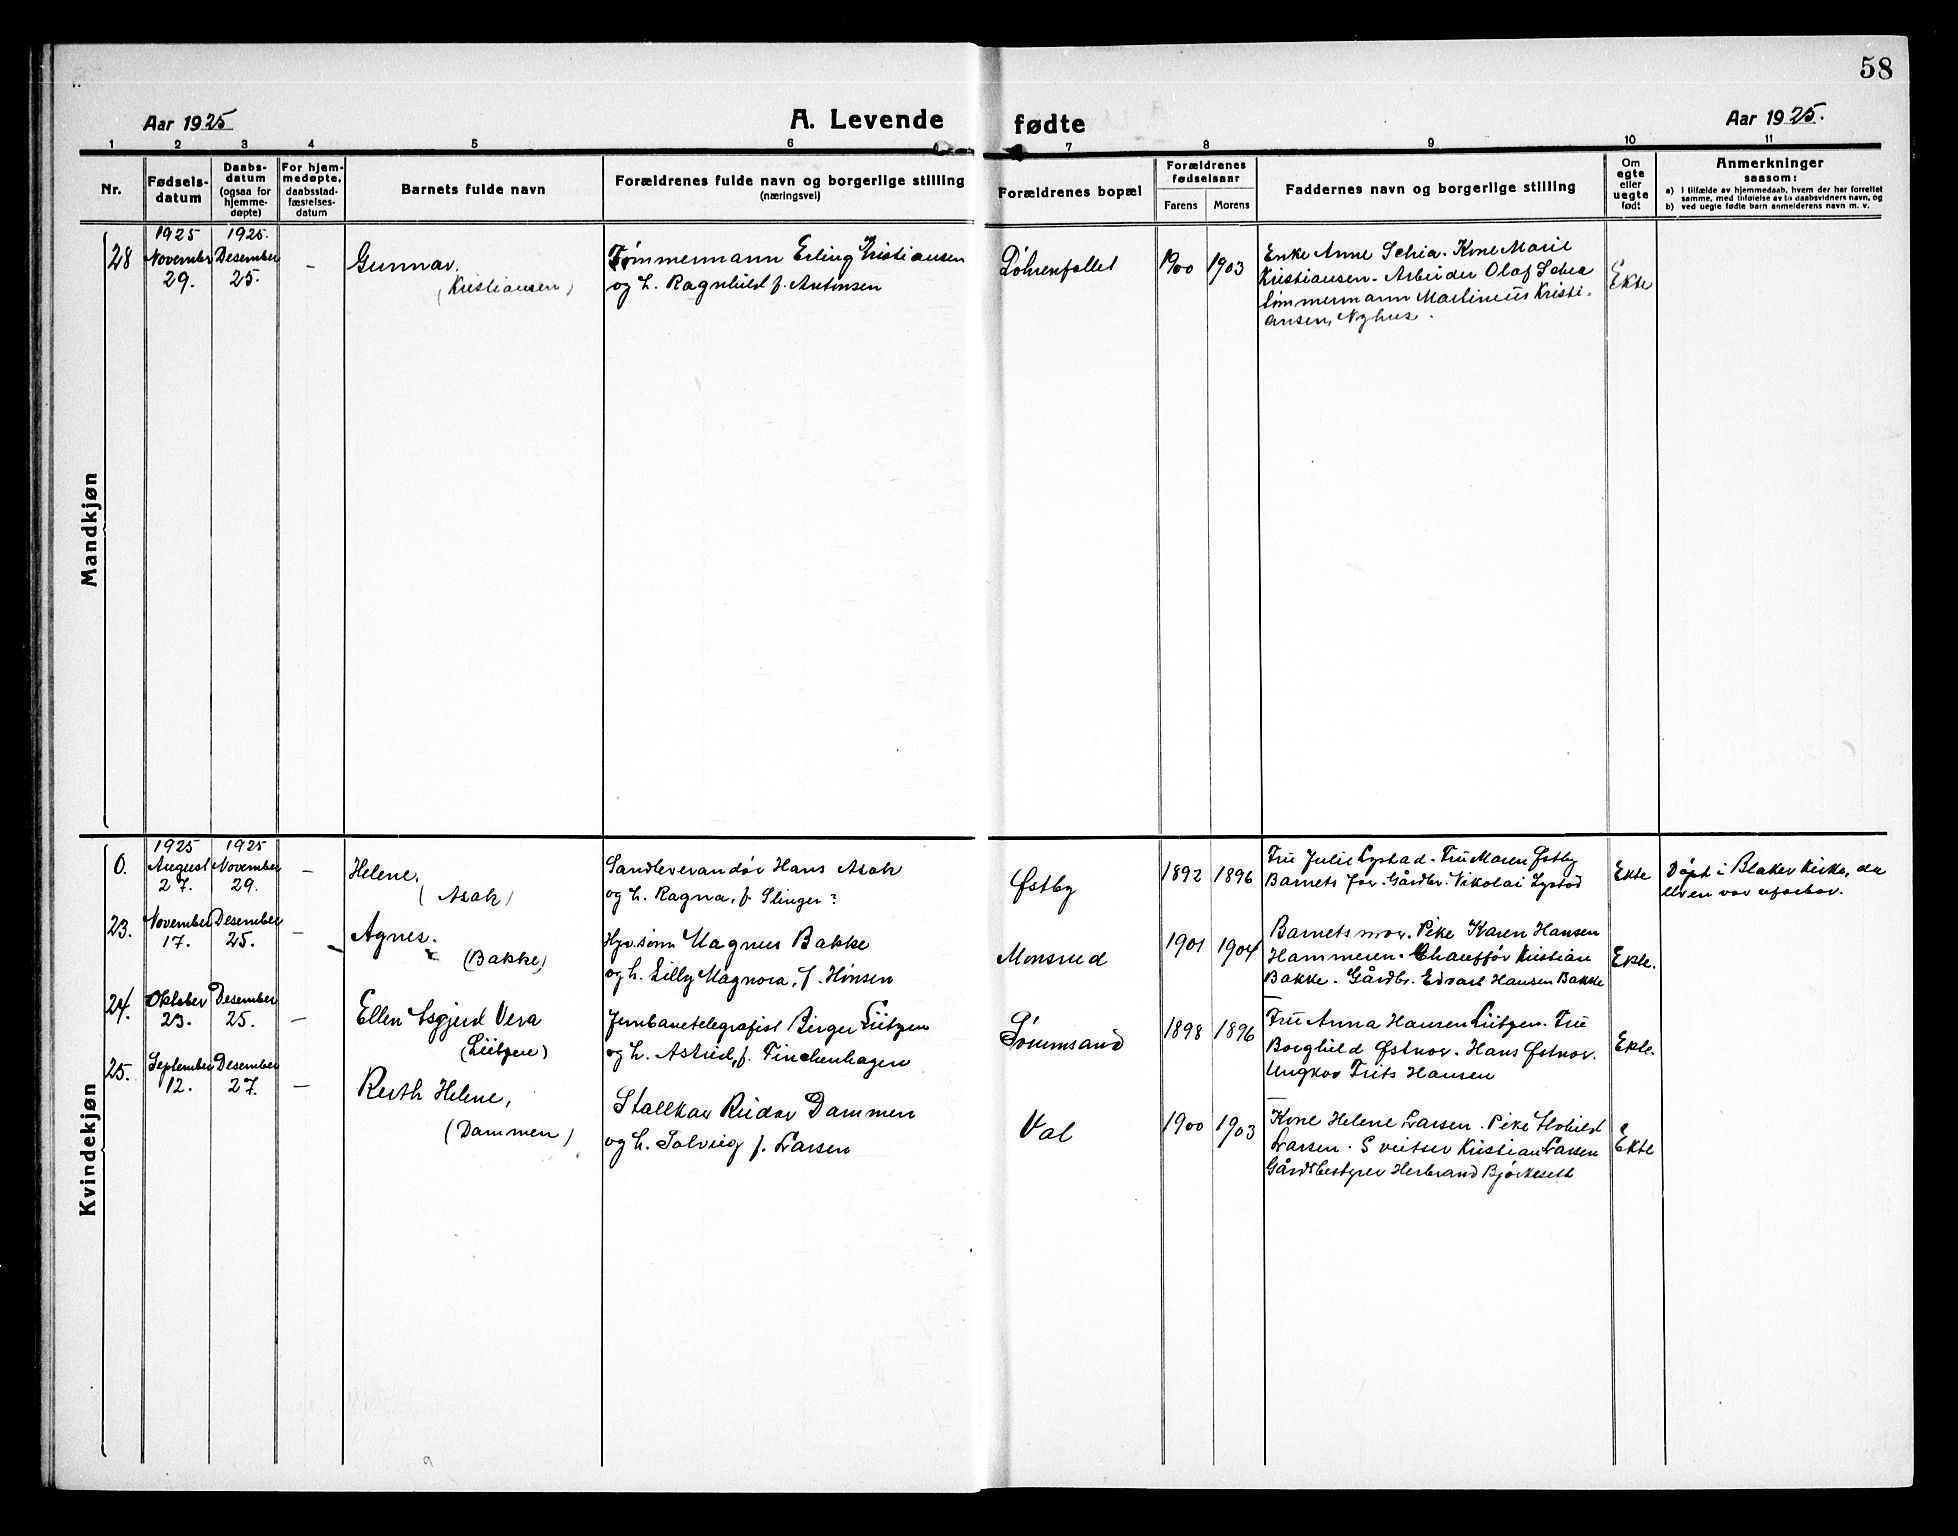 58
Aar 1925
A. Levende
fødte
Aar 1925.
1 2 3 4 5 6 7 8 9 10 11
Nr.
Fødsels-
datum
Daabs-
datum
(ogsaa for
hjemme-
døpte)
For hjem-
medøpte,
daabsstad-
fæstelses-
datum
Barnets fulde navn
Forældrenes fulde navn og borgerlige stilling
(næringsvei)
Forældrenes bopæl
Forældrenes
fødselsaar
Farens Morens
Faddernes navn og borgerlige stilling
Om
egte
eller
uegte
født
Anmerkninger
saasom:
a) I tilfælde av hjemmedaab, hvem der har forrettet
samme, med tilføielse av to daabsvidners navn, og
b) ved uegte fødte barn anmelderens navn m. v.
Mandkjøn
28
1925
November
29.
1925.
Desember
25.
–
Gunnar.
(Kristiansen)
Tømmermann Erling Kristiansen
og h. Ragnhild f. Antonsen
1900 1903
Enke Anne Schia. Kone Marie
Kristiansen. Arbeider Olaf Schea
tømmermann Martinius Kristi-
ansen, Nyhus.
Ekte
Kvindekjøn
0.
1925
August
27.
1925
November
29.
–
Helene.
(Asak)
Sandleverandør Hans Asak
og h. Ragna, f. Slinger?
Østby
1892 1896
Fru Julie Lystad. Fru Maren Østby
Barnets far. Gårdbr. Nikolai Lystad
Ekte
Døpt i Blaker kirke, da
elven var ufarbar.
23.
November
17.
Desember
25.
–
Agnes.
(Bakke)
Magnus Bakke
og h. Lilly Magnora, f. Hansen
Monsrud
1901 1904
Barnets mor. Pike Karen Hansen
Hammeren. Chauffør Kristian
Bakke. Gårdbr. Edvart Hansen Bakke
Ekte.
24.
Oktober
23.
Desember
25.
–
Ellen Asgjerd Vera
(Lützen)
Jernbanetelegrafist Birger Lützen
og h. Astrid, f. Finchenhagen
Sørumsand
1898 1896
Fru Anna Hansen Lützen. Fru
Borghild Østnor. Hans Østnor.
Ungkar Frits Hansen
Ekte.
25.
September
12.
Desember
27.
–
Ruth Helene,
(Dammen)
Stallkar Reidar Dammen
og h. Solveig f. Larsen
Val
1900 1903
Kone Helene Larsen. Pike
Larsen. Sveitser Kristian Larsen
Gårdsbestyrer Herbrand Bjørkeseth
Ekte